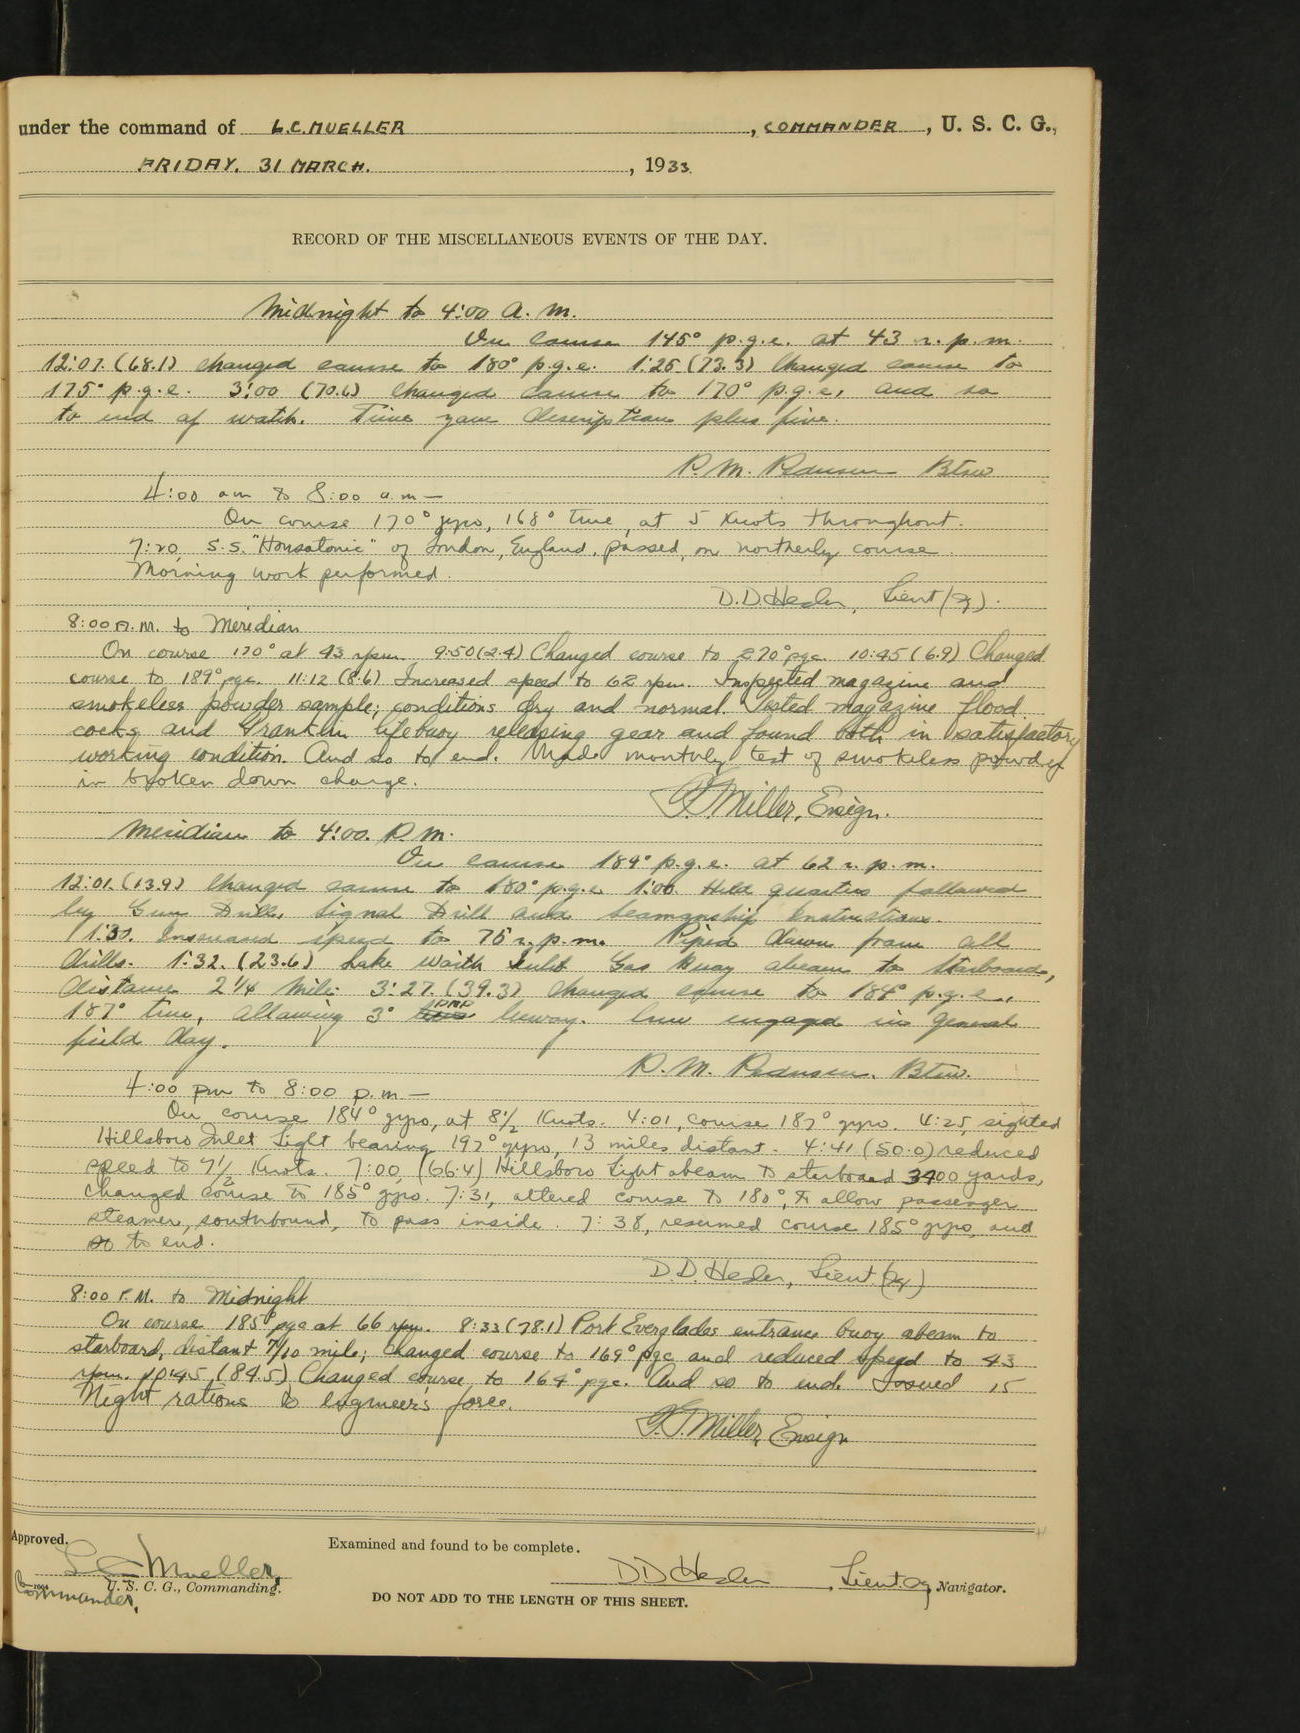 under the command of L.C. MUELLER, COMMANDER, U. S. C. G.,
FRIDAY, 31 MARCH., 1933.
RECORD OF THE MISCELLANEOUS EVENTS OF THE DAY.
Midnight to 4:00 A. M.
On course 145° p.g.c. at 43 r. p. m.
12:07. (68.1) changed course to 180° p.g.c. 1:25 (73.3) changed course to
175° p.g.c. 3:00 (70.6) changed course to 170° p.g.c., and so
to end of watch. Time zone description plus five.
R. M. Btsw
4:00 am to 8:00 a.m —
On course 170° gyro, 168° true, at 5 knots throughout.
7:20, S.S. "Housatonic" of London, England, passed, on northerly course.
Morning work performed.
D.D. Hesler, Lieut (jg).
8:00 A.M. to Meridian
On course 170° at 43 rpm. 9:50 (2.4) Changed course to 270° pgc. 10:45 (6.9) Changed
course to 189° pgc. 11:12 (8.6) Increased speed to 62 rpm. Inspected magazine and
smokeless powder sample; conditions dry and normal. Tested magazine flood
cocks and Franklin lifebuoy releasing gear and found both in satisfactory
working condition. And so to end. Made monthly test of smokeless powder
in broken down charge.
Miller, Ensign.
Meridian to 4:00. P.M.
On course 189° p.g.c. at 62 r. p. m.
12:01. (13.9) changed course to 180° p.g.c. 1:00. Held quarters followed
by Gun Drill, Signal Drill and Seamanship Instructions.
1:30. Increased speed to 75 r. p. m. Piped down from all
drills. 1:32. (23.6) Lake Worth Inlet Gas Buoy abeam to starboard,
distance 2 1/4 mile. 3:27. (39.3) changed course to 184° p.g.c.,
187° true, allowing 3° leeway. Crew engaged in general
field day.
R. M. Btsw.
4:00 pm to 8:00 p.m —
On course 184° gyro, at 8 1/2 knots. 4:01, course 187° gyro. 4:25, sighted
Hillsboro Inlet Light bearing 197° gyro, 13 miles distant. 4:41 (50.0) reduced
speed to 7 1/2 knots. 7:00, (66.4) Hillsboro Light abeam to starboard 3400 yards,
changed course to 185° gyro. 7:31, altered course to 180°, to allow passenger
steamer, southbound, to pass inside. 7:38, resumed course 185° gyro, and
so to end.
D.D. Hesler, Lieut. (jg)
8:00 P.M. to Midnight
On course 185° pgc at 66 rpm. 8:33 (78.1) Port Everglades entrance buoy abeam to
starboard, distant 7/10 mile; changed course to 169° pgc and reduced speed to 43
rpm. 10:45 (84.5) Changed course to 164° pgc. And so to end. Issued 15
Night rations to engineer's force.
Miller, Ensign
Approved.
Examined and found to be complete.
L C Mueller,
Commander, U. S. C. G., Commanding.
D D Hesler, Lieut. jg, Navigator.
DO NOT ADD TO THE LENGTH OF THIS SHEET.